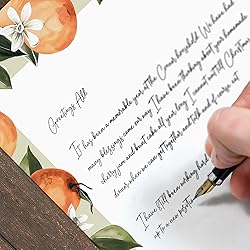 Greetings All
It has been a memorable year at the Comer household. We have had
many blessings come our way. I have been thinking about your homemade
cherry jam and burnt cake all year long. I cannot wait till Christmas
dinner when we can get together and talk and of course eat.
I have still been working hard
up to a new position